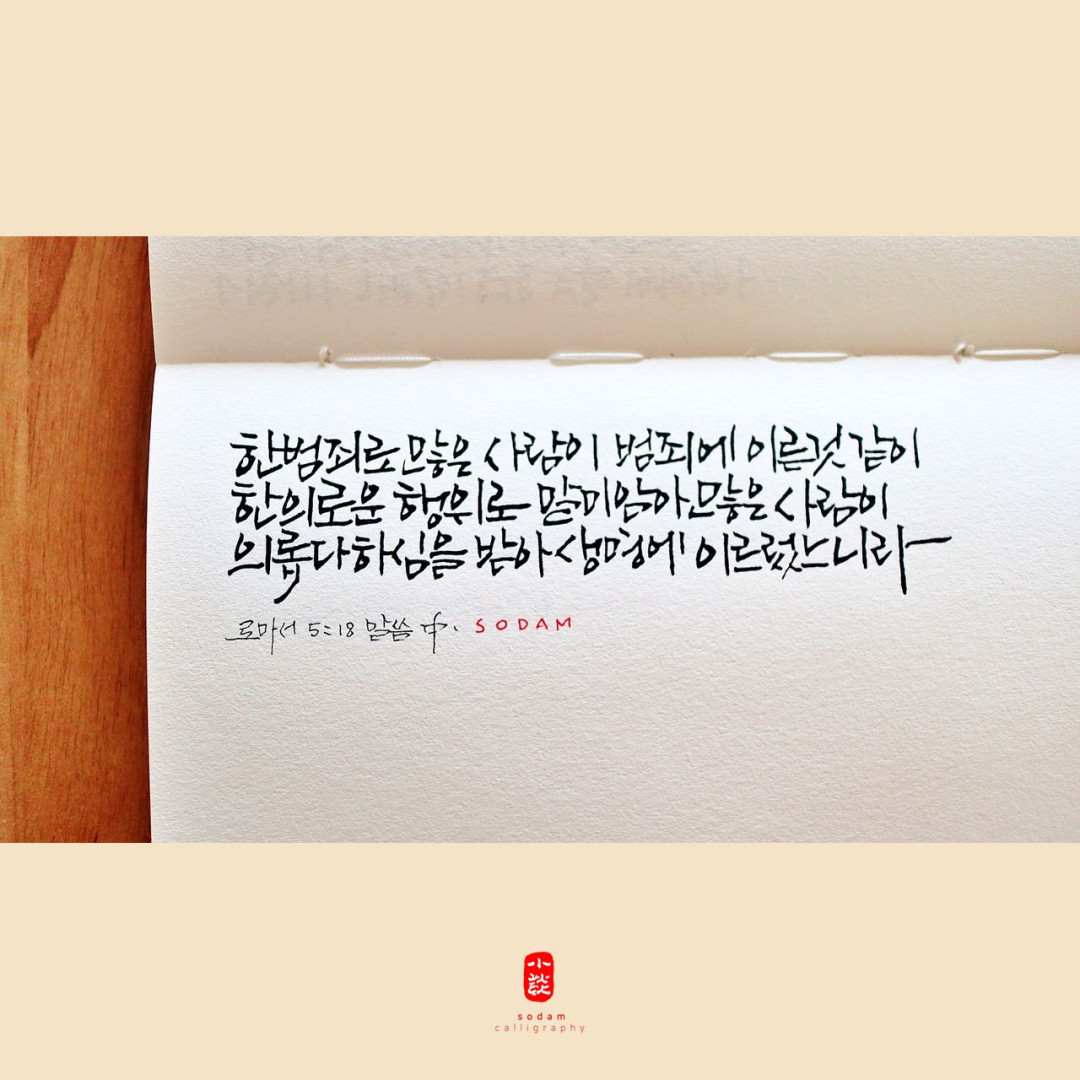 한범죄로 많은 사람이 범죄에 이른것 같이
한의로운 행위로 말미암아 많은 사람이
의롭다하심을 받아 생명에 이르렀느니라
로마서 5:18 말씀 中. SODAM
小談
sodam
calligraphy